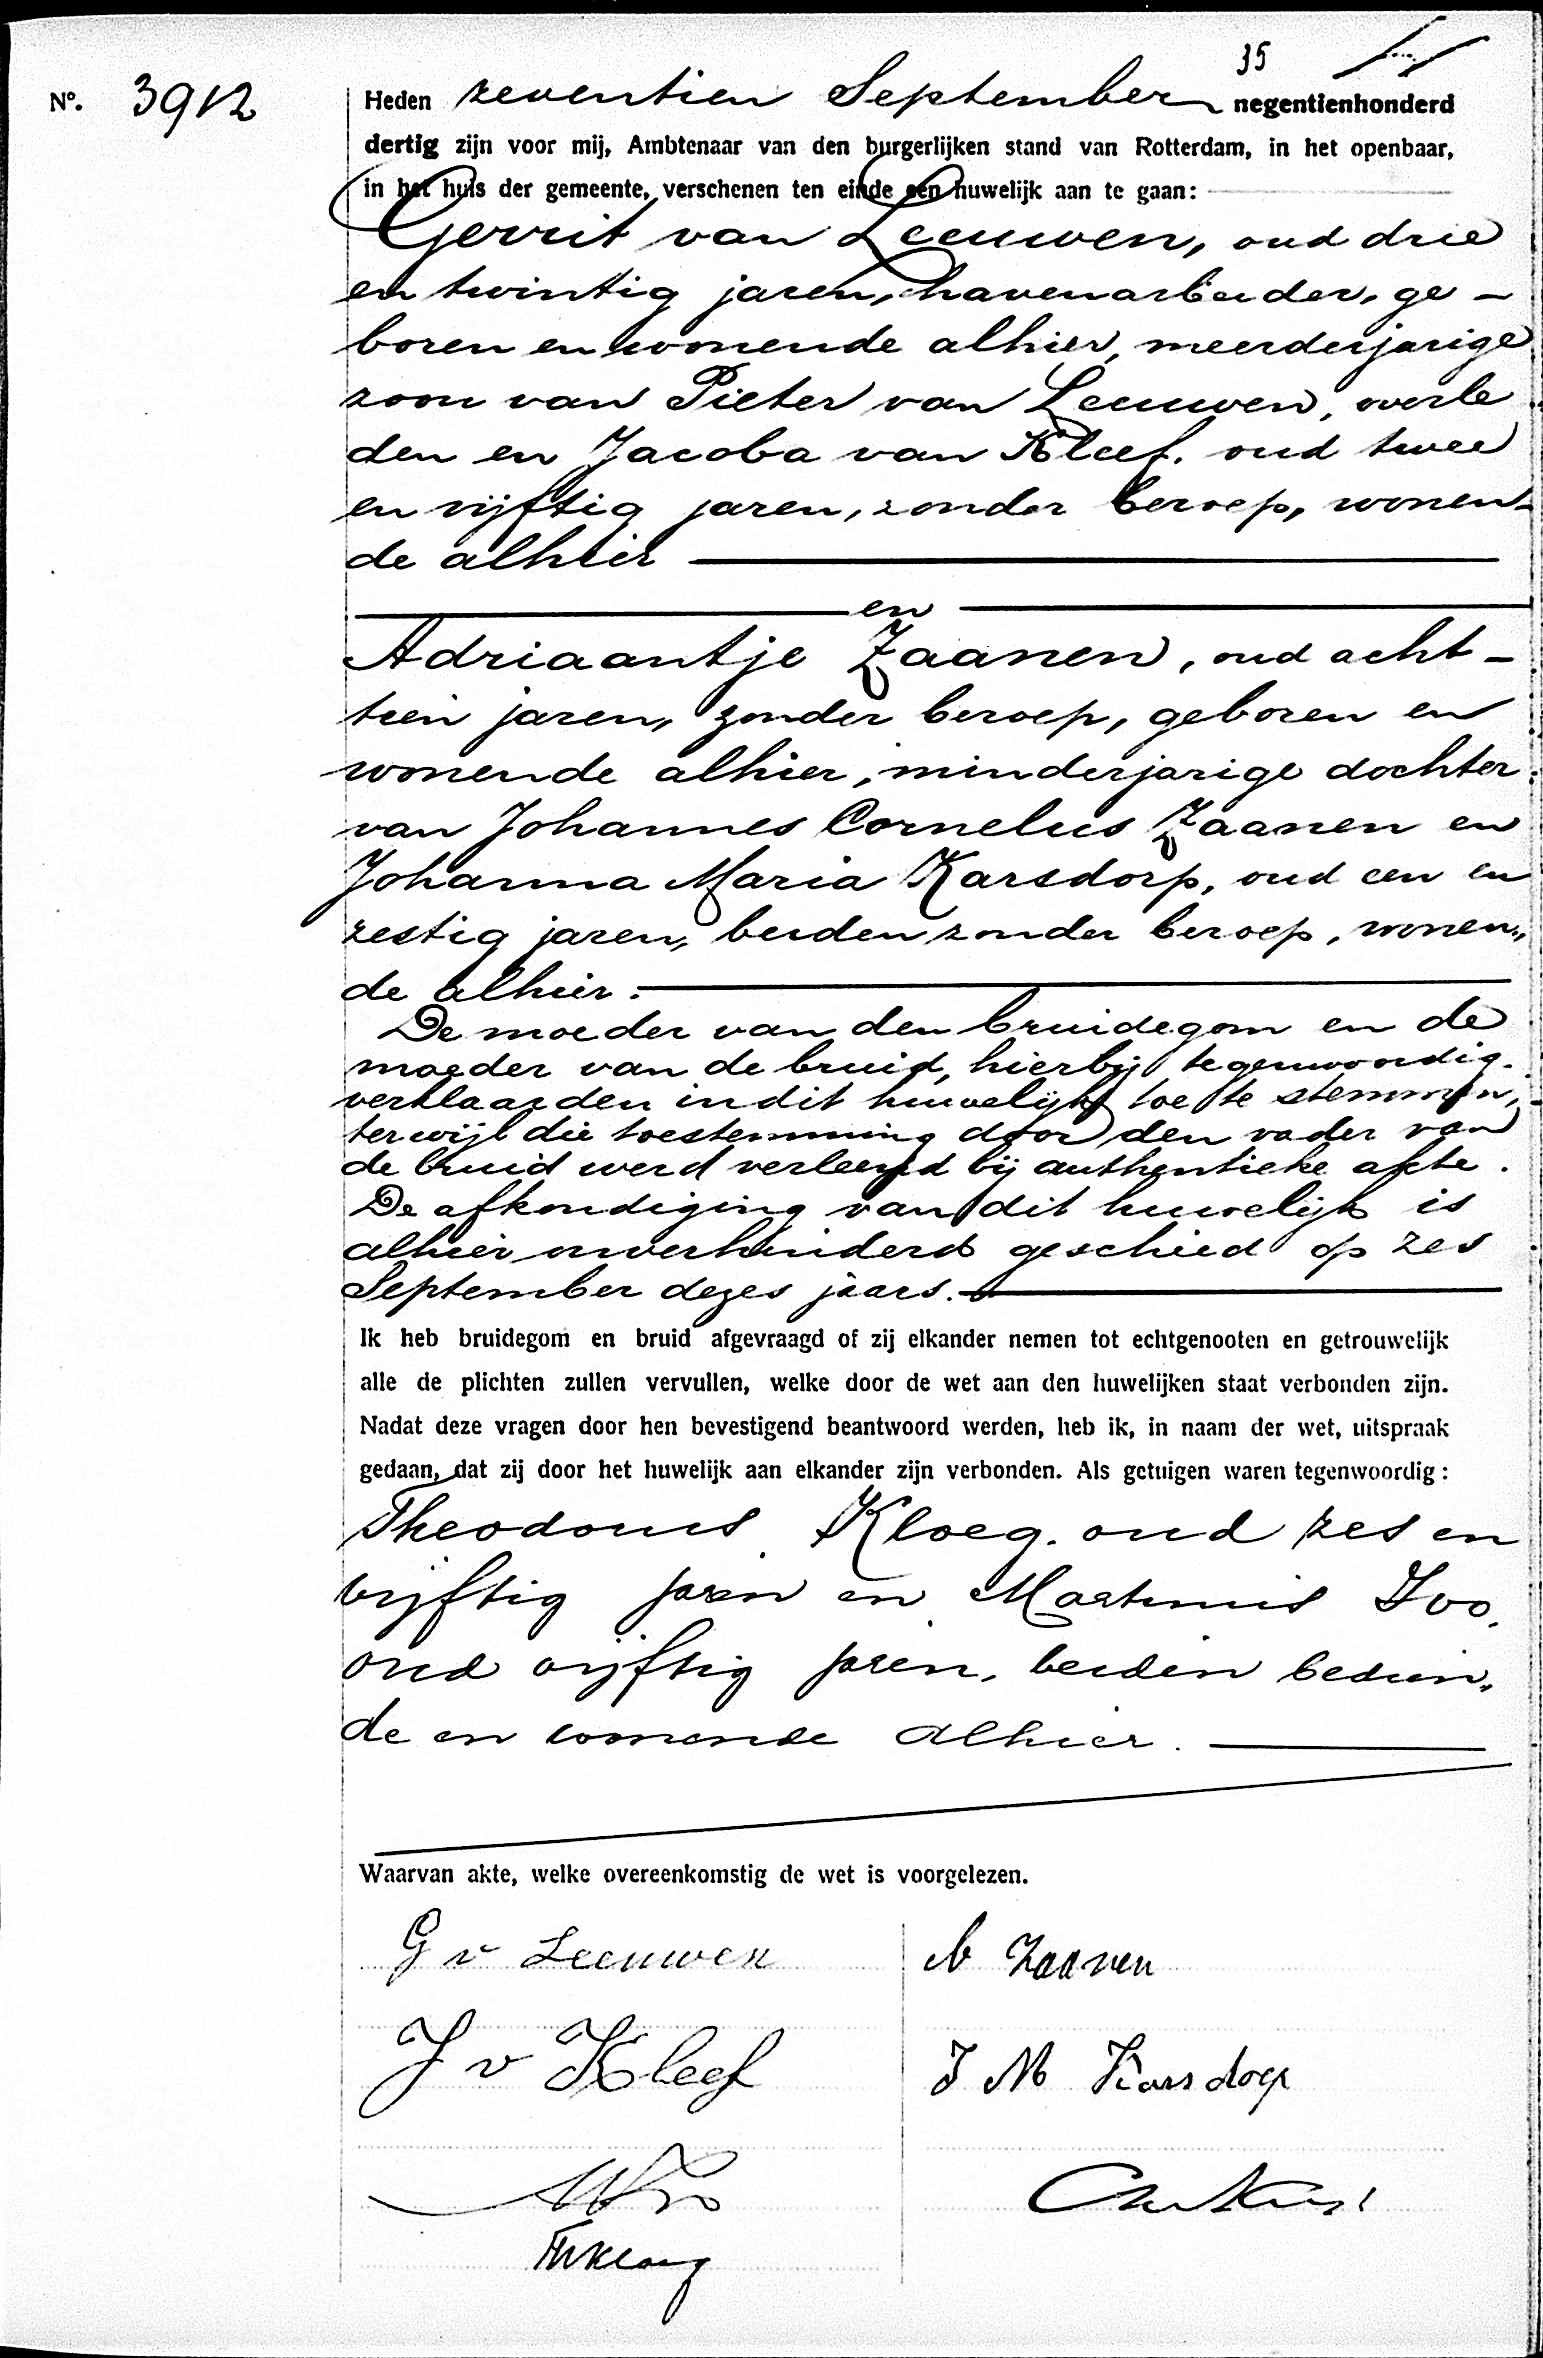 35
Nº. 3912
Heden zeventien September negentienhonderd
dertig zijn voor mij, Ambtenaar van den burgerlijken stand van Rotterdam, in het openbaar,
in het huis der gemeente, verschenen ten einde een huwelijk aan te gaan:
Gerrit van Leeuwen, oud drie
en twintig jaren, havenarbeider, ge-
boren en wonende alhier, meerderjarige
zoon van Pieter van Leeuwen, overle
den en Jacoba van Kleef, oud twee
en vijftig jaren, zonder beroep, wonen-
de alhier
en
Adriaantje Zaanen, oud acht-
tien jaren, zonder beroep, geboren en
wonende alhier, minderjarige dochter
van Johannes Cornelus Zaanen en
Johanna Maria Karsdorp, oud een en
zestig jaren, beiden zonder beroep, wonen„
de alhier.
De moeder van den bruidegom en de
moeder van de bruid, hierbij tegenwoordig.
verklaarden in dit huwelijk toe te stemmen,
terwijl die toestemming door den vader van
de bruid werd verleend bij authentieke akte.
De afkondiging van dit huwelijk is
alhier onverhinderd geschied op zes
September dezes jaars.
Ik heb bruidegom en bruid afgevraagd of zij elkander nemen tot echtgenooten en getrouwelijk
alle de plichten zullen vervullen, welke door de wet aan den huwelijken staat verbonden zijn.
Nadat deze vragen door hen bevestigend beantwoord werden, heb ik, in naam der wet, uitspraak
gedaan, dat zij door het huwelijk aan elkander zijn verbonden. Als getuigen waren tegenwoordig:
Theodorus Kloeg. oud zes en
vijftig jaren en Martinus Ivo,
oud vijftig jaren, beiden bedien„
de en wonende alhier.
Waarvan akte, welke overeenkomstig de wet is voorgelezen.
G v Leeuwen
A Zaanen
J v Kleef
J M Karsdorp